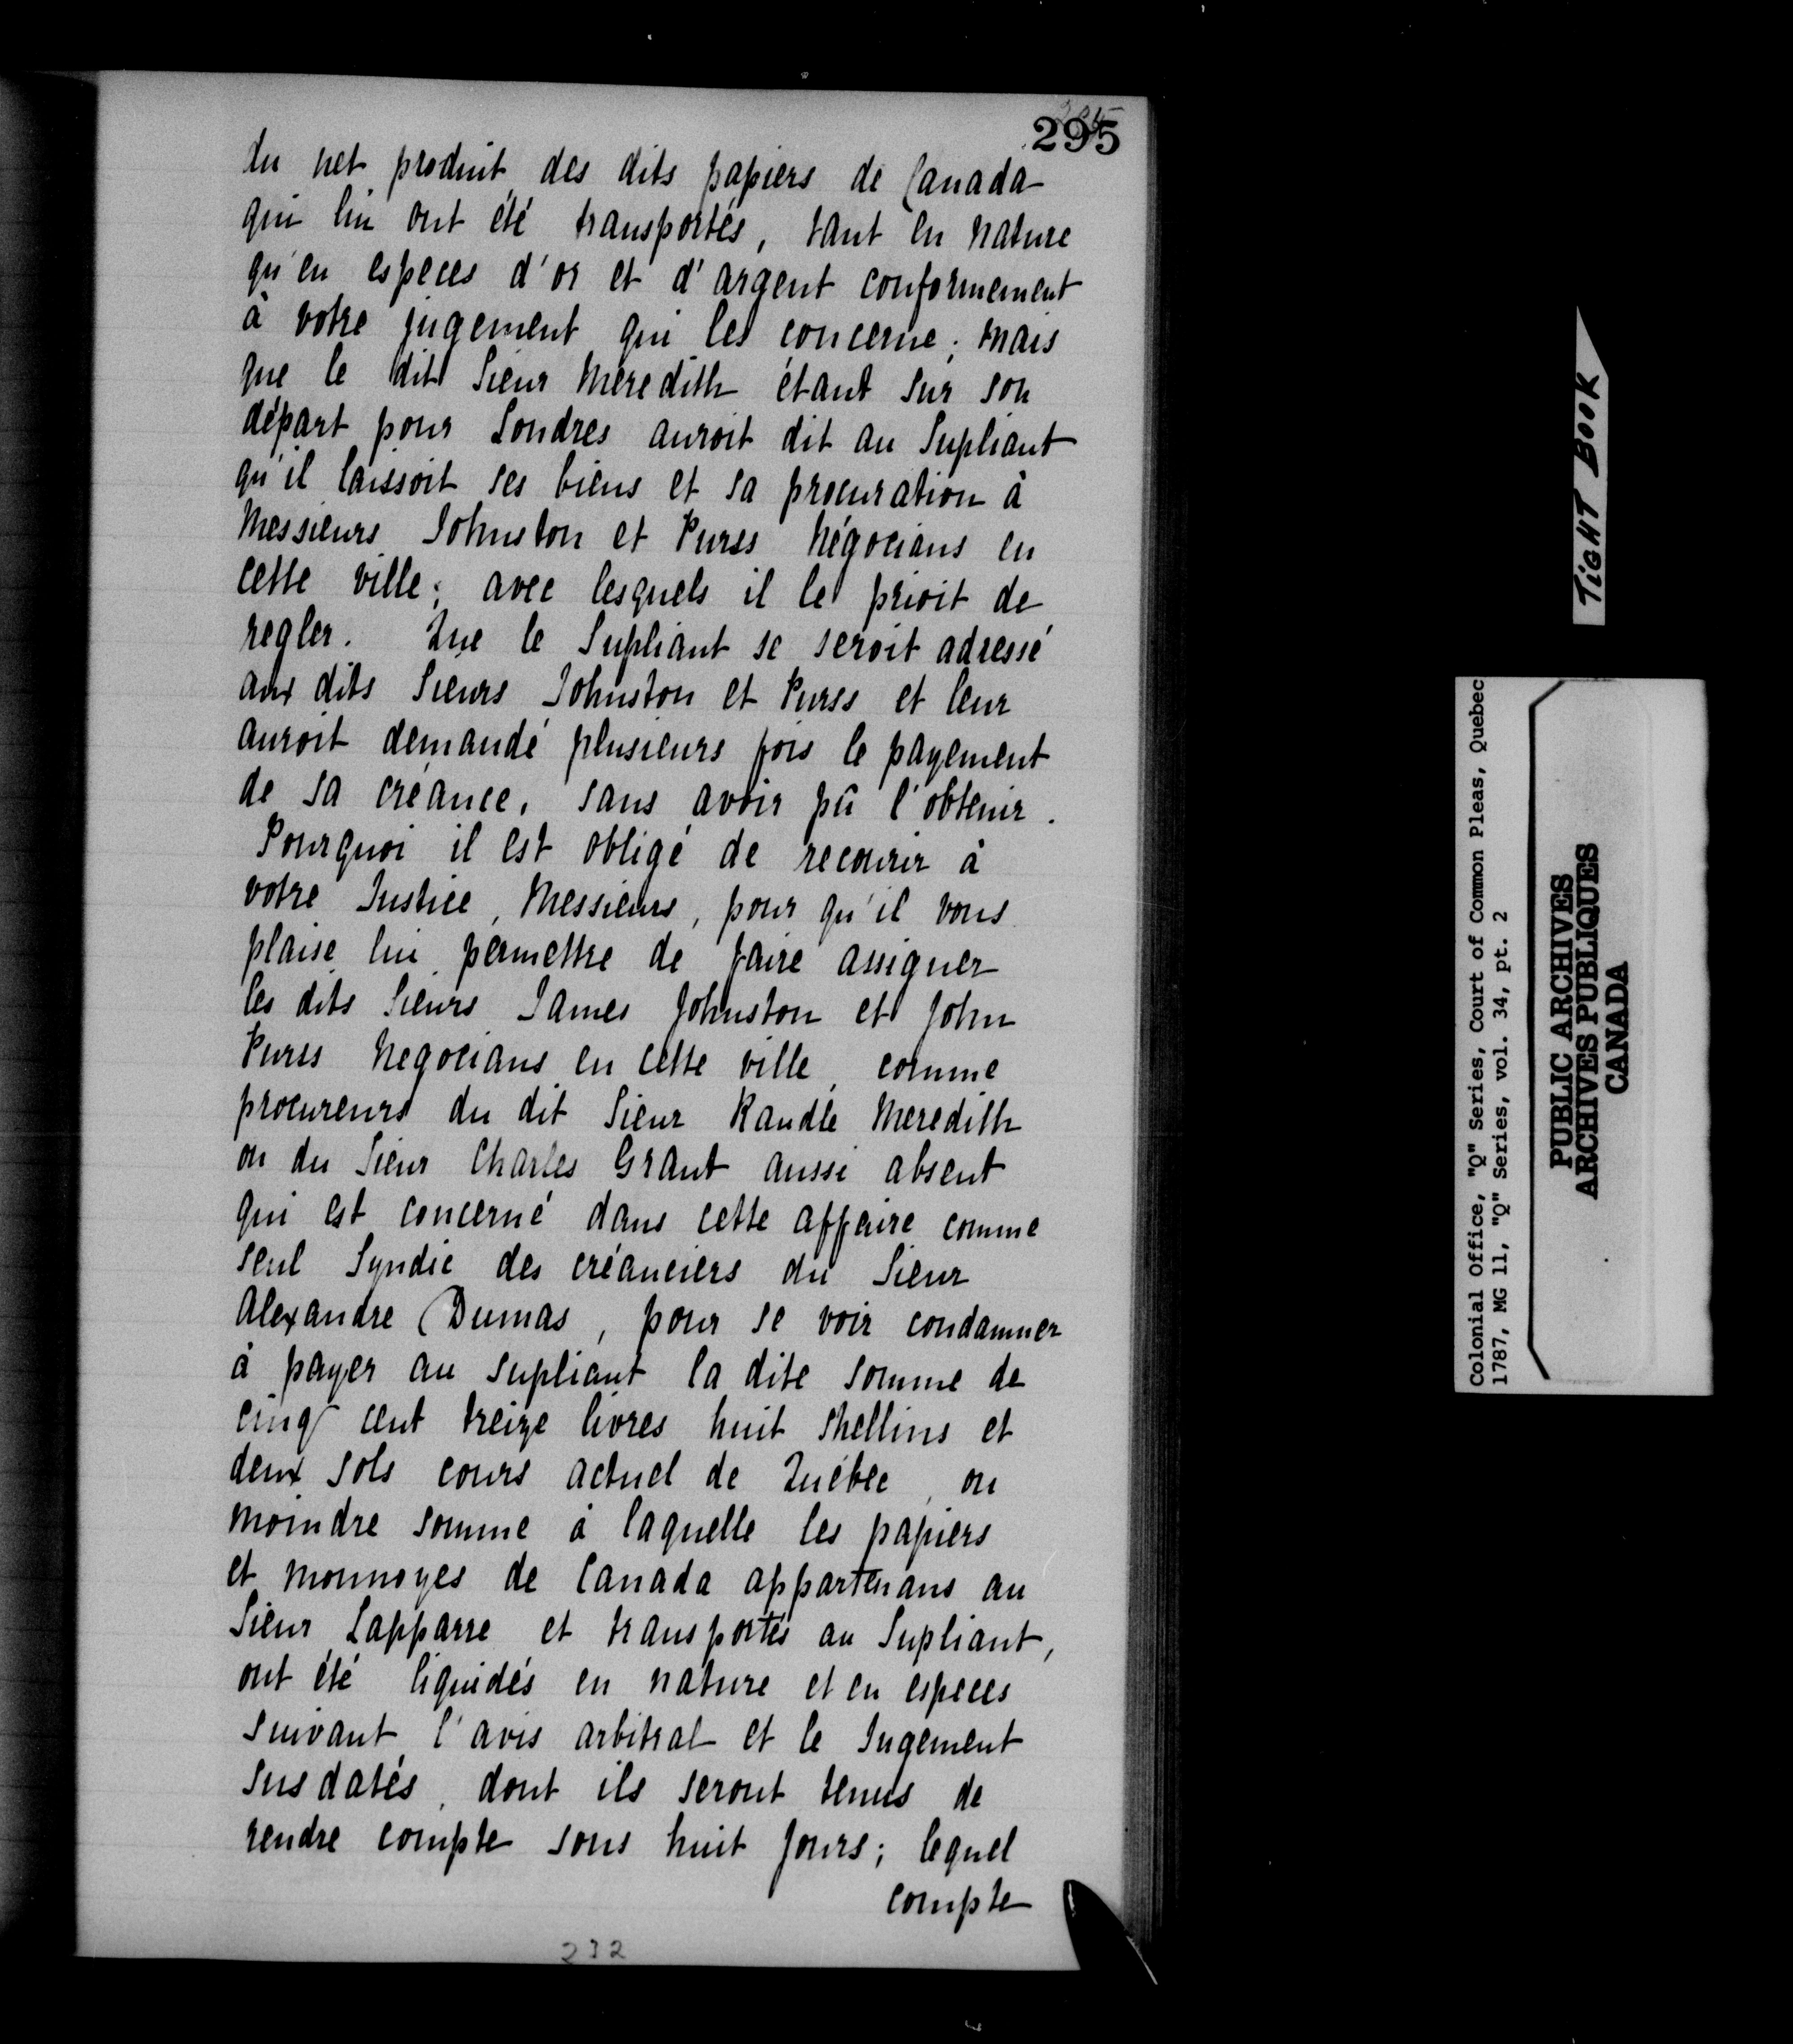 295
du net produit des dits papiers de Canada
qui lui ont été transportés, tant en nature
qu'en especes d'or et d'argent conformement
à votre jugement qui les concerne; mais
que le dit Sieur Meredith étant sur son
départ pour Londres auroit dit au Supliant
qu'il laissoit ses biens et sa procuration à
Messieurs Johnston et Purss Négocians en
cette ville; avec lesquels il le prioit de
regler. Que le Supliant se seroit adressé
aux dits Sieurs Johnston et Purss et leur
auroit demandé plusieurs fois le payement
de sa créance, sans avoir pû l'obtenir.
Pourquoi il est obligé de recourir à
votre Justice, Messieurs, pour qu'il vous
plaise lui permettre de faire assigner
les dits Sieurs James Johnston et John
Purss Negocians en cette ville, comme
procureurs du dit Sieur Randle Meredith
ou du Sieur Charles Grant aussi absent
qui est concerné dans cette affaire comme
seul Syndic des créanciers du Sieur
Alexandre Dumas, pour se voir condamner
à payer au supliant la dite somme de
cinq cent treize livres huit shellins et
deux sols cours actuel de Québec, ou
moindre somme à laquelle les papiers
et monnoyes de Canada appartenans au
Sieur Lapparre et transportés au Supliant,
ont été liquidés en nature et en especes
suivant l'avis arbitral et le Jugement
susdatés, dont ils seront tenus de
rendre compte sous huit jours; lequel
compte
232
TIGHT BOOK
Colonial Office, "Q" Series, Court of Common Pleas, Quebec
1787, MG 11, "Q" Series, vol. 34, pt. 2
PUBLIC ARCHIVES
ARCHIVES PUBLIQUES
CANADA